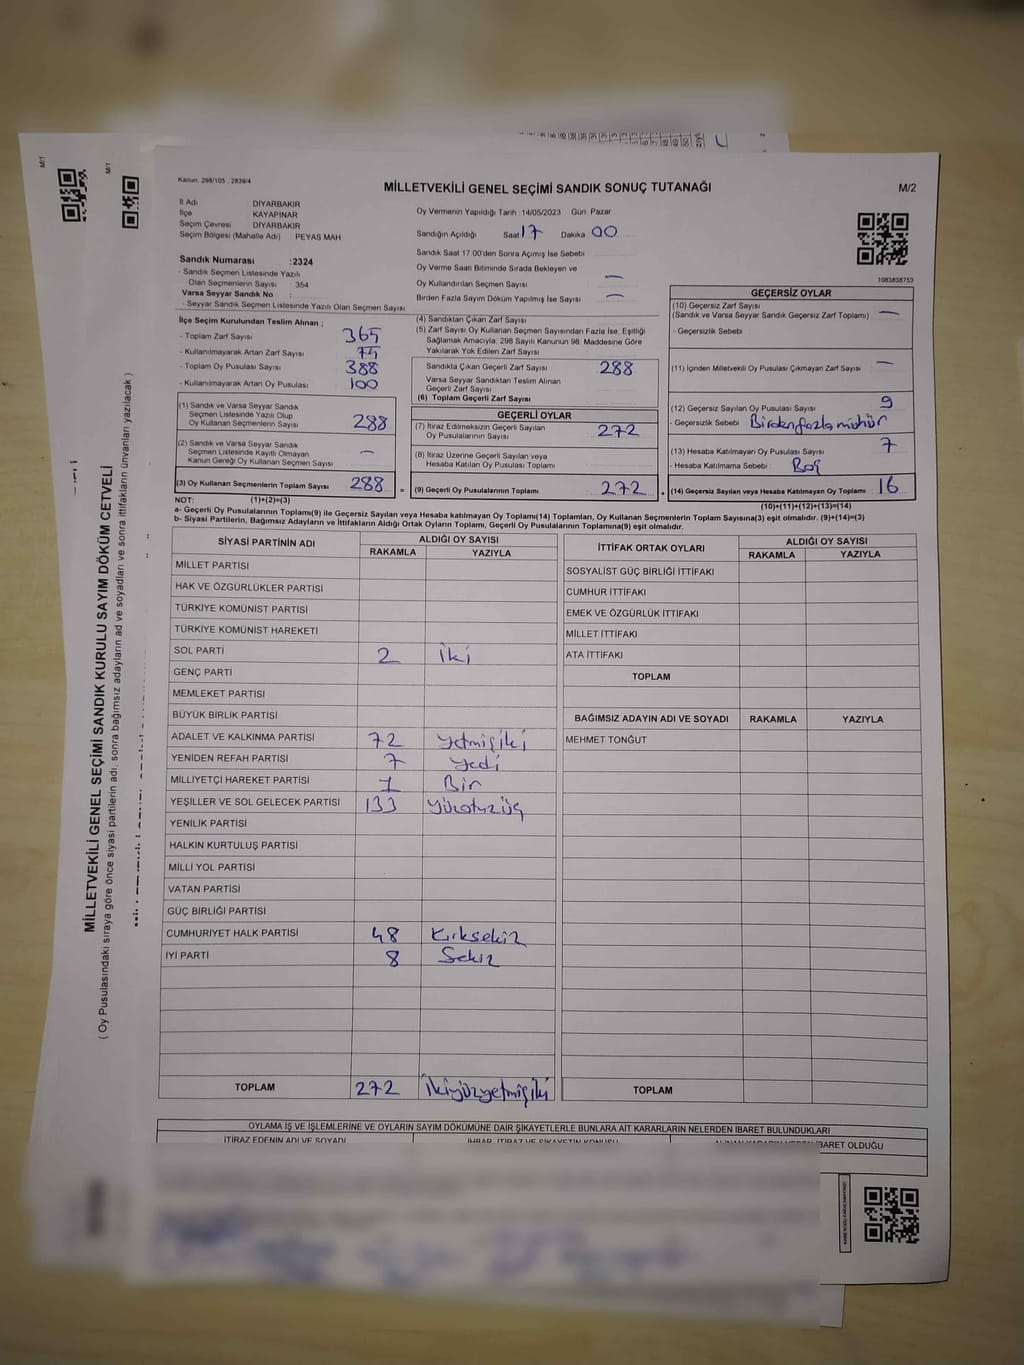 M/1
M/1
MİLLETVEKİLİ GENEL SEÇİMİ SANDIK KURULU SAYIM DÖKÜM CETVELİ
( Oy Pusulasındaki sıraya göre önce siyasi partilerin adı, sonra bağımsız adayların ad ve soyadları ve sonra ittifakların ünvanları yazılacak )
Kanun. 298/105 : 2839/4
MİLLETVEKİLİ GENEL SEÇİMİ SANDIK SONUÇ TUTANAĞI
M/2
İl Adı DİYARBAKIR
İlçe KAYAPINAR
Seçim Çevresi DİYARBAKIR
Seçim Bölgesi (Mahalle Adı) : PEYAS MAH
Oy Vermenin Yapıldığı Tarih :14/05/2023 Gün Pazar
Sandığın Açıldığı Saat 17 Dakika 00
Sandık Saat 17.00'den Sonra Açımış İse Sebebi
Oy Verme Saati Bitiminde Sırada Bekleyen ve
Oy Kullandırılan Seçmen Sayısı —
Birden Fazla Sayım Döküm Yapılmış İse Sayısı —
1083838753
Sandık Numarası :2324
- Sandık Seçmen Listesinde Yazılı
Olan Seçmenlerin Sayısı : 354
Varsa Seyyar Sandık No :
- Seyyar Sandık Seçmen Listesinde Yazılı Olan Seçmen Sayısı
İlçe Seçim Kurulundan Teslim Alınan ;
- Toplam Zarf Sayısı 365
- Kullanılmayarak Artan Zarf Sayısı
- Toplam Oy Pusulası Sayısı 388
- Kullanılmayarak Artan Oy Pusulası 100
(1) Sandık ve Varsa Seyyar Sandık
Seçmen Listesinde Yazılı Olup
Oy Kullanan Seçmenlerin Sayısı 288
(2) Sandık ve Varsa Seyyar Sandık
Seçmen Listesinde Kayıtlı Olmayan
Kanun Gereği Oy Kullanan Seçmen Sayısı —
(3) Oy Kullanan Seçmenlerin Toplam Sayısı 288 =
(4) Sandıktan Çıkan Zarf Sayısı
(5) Zarf Sayısı Oy Kullanan Seçmen Sayısından Fazla İse, Eşitliği
Sağlamak Amacıyla; 298 Sayılı Kanunun 98. Maddesine Göre
Yakılarak Yok Edilen Zarf Sayısı
Sandıkta Çıkan Geçerli Zarf Sayısı 288
Varsa Seyyar Sandıktan Teslim Alınan
Geçerli Zarf Sayısı
(6) Toplam Geçerli Zarf Sayısı
GEÇERLİ OYLAR
(7) İtiraz Edilmeksizin Geçerli Sayılan
Oy Pusulalarının Sayısı 272
(8) İtiraz Üzerine Geçerli Sayılan veya
Hesaba Katılan Oy Pusulası Toplamı
(9) Geçerli Oy Pusulalarının Toplamı 272
GEÇERSİZ OYLAR
(10) Geçersiz Zarf Sayısı
(Sandık ve Varsa Seyyar Sandık Geçersiz Zarf Toplamı) —
- Geçersizlik Sebebi
(11) İçinden Milletvekili Oy Pusulası Çıkmayan Zarf Sayısı —
(12) Geçersiz Sayılan Oy Pusulası Sayısı 9
- Geçersizlik Sebebi Birden fazla mühür
(13) Hesaba Katılmayan Oy Pusulası Sayısı 7
- Hesaba Katılmama Sebebi Boş
(14) Geçersiz Sayılan veya Hesaba Katılmayan Oy Toplamı 16
NOT: (1)+(2)=(3)
(10)+(11)+(12)+(13)=(14)
a- Geçerli Oy Pusulalarının Toplamı(9) ile Geçersiz Sayılan veya Hesaba katılmayan Oy Toplamı(14) Toplamları, Oy Kullanan Seçmenlerin Toplam Sayısına(3) eşit olmalıdır. (9)+(14)=(3)
b- Siyasi Partilerin, Bağımsız Adayların ve İttifakların Aldığı Ortak Oyların Toplamı, Geçerli Oy Pusulalarının Toplamına(9) eşit olmalıdır.
SİYASİ PARTİNİN ADI ALDIĞI OY SAYISI
RAKAMLA YAZIYLA
MİLLET PARTİSİ
HAK VE ÖZGÜRLÜKLER PARTİSİ
TÜRKİYE KOMÜNİST PARTİSİ
TÜRKİYE KOMÜNİST HAREKETİ
SOL PARTİ 2 iki
GENÇ PARTİ
MEMLEKET PARTİSİ
BÜYÜK BİRLİK PARTİSİ
ADALET VE KALKINMA PARTİSİ 72 yetmişiki
YENİDEN REFAH PARTİSİ 7 yedi
MİLLİYETÇİ HAREKET PARTİSİ 1 Bir
YEŞİLLER VE SOL GELECEK PARTİSİ 133
YENİLİK PARTİSİ
HALKIN KURTULUŞ PARTİSİ
MİLLİ YOL PARTİSİ
VATAN PARTİSİ
GÜÇ BİRLİĞİ PARTİSİ
CUMHURİYET HALK PARTİSİ 48 Kırksekiz
İYİ PARTİ 8 Sekiz
TOPLAM 272 ikiyüzyetmişiki
İTTİFAK ORTAK OYLARI ALDIĞI OY SAYISI
RAKAMLA YAZIYLA
SOSYALİST GÜÇ BİRLİĞİ İTTİFAKI
CUMHUR İTTİFAKI
EMEK VE ÖZGÜRLÜK İTTİFAKI
MİLLET İTTİFAKI
ATA İTTİFAKI
TOPLAM
BAĞIMSIZ ADAYIN ADI VE SOYADI RAKAMLA YAZIYLA
MEHMET TONĞUT
TOPLAM
OYLAMA İŞ VE İŞLEMLERİNE VE OYLARIN SAYIM DÖKÜMÜNE DAİR ŞİKAYETLERLE BUNLARA AİT KARARLARIN NELERDEN İBARET BULUNDUKLARI
İTİRAZ EDENİN ADI VE SOYADI İHBAR, İTİRAZ VE ŞİKAYETİN KONUSU ALINAN KARARIN NEDEN İBARET OLDUĞU